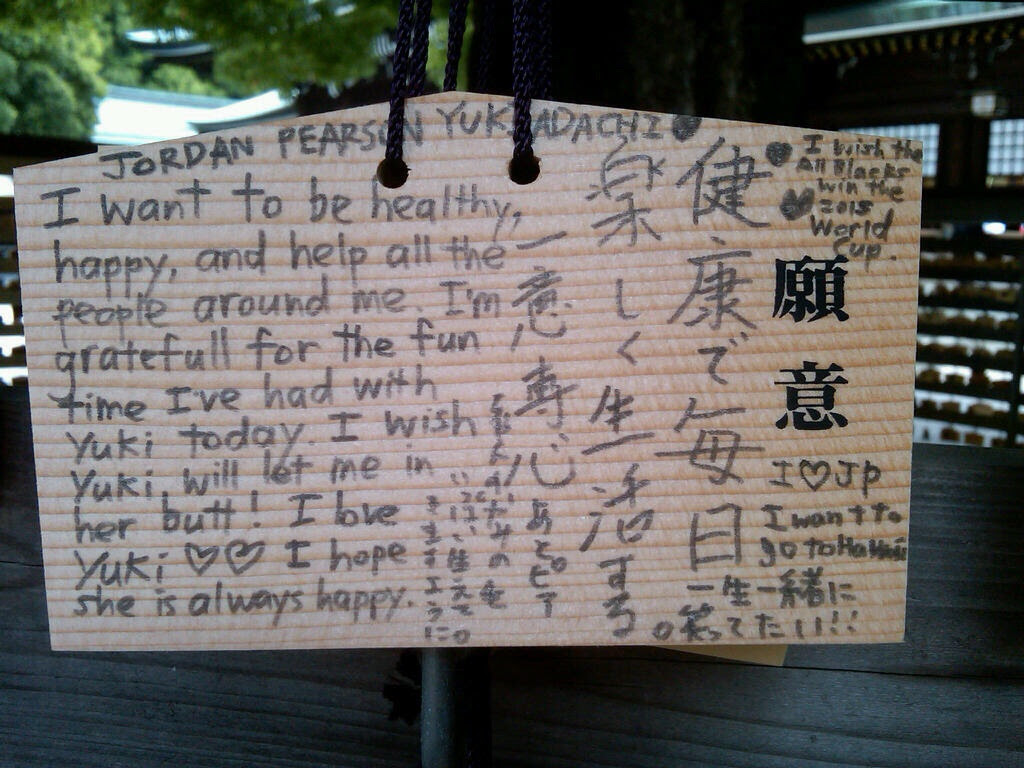 JORDAN PEARSON YUKI ADACHI
I want to be healthy,
happy, and help all the
people around me. I'm
gratefull for the fun
time I've had with
Yuki today. I wish
Yuki will let me in
her butt! I love
Yuki ♡♡ I hope
she is always happy.
I wish the
All Blacks
win the
2015
World
Cup.
願意
健康で毎日
楽しく生活する
I♡Jp
I want to
go to Hawaii
一生一緒に
笑ってたい!!